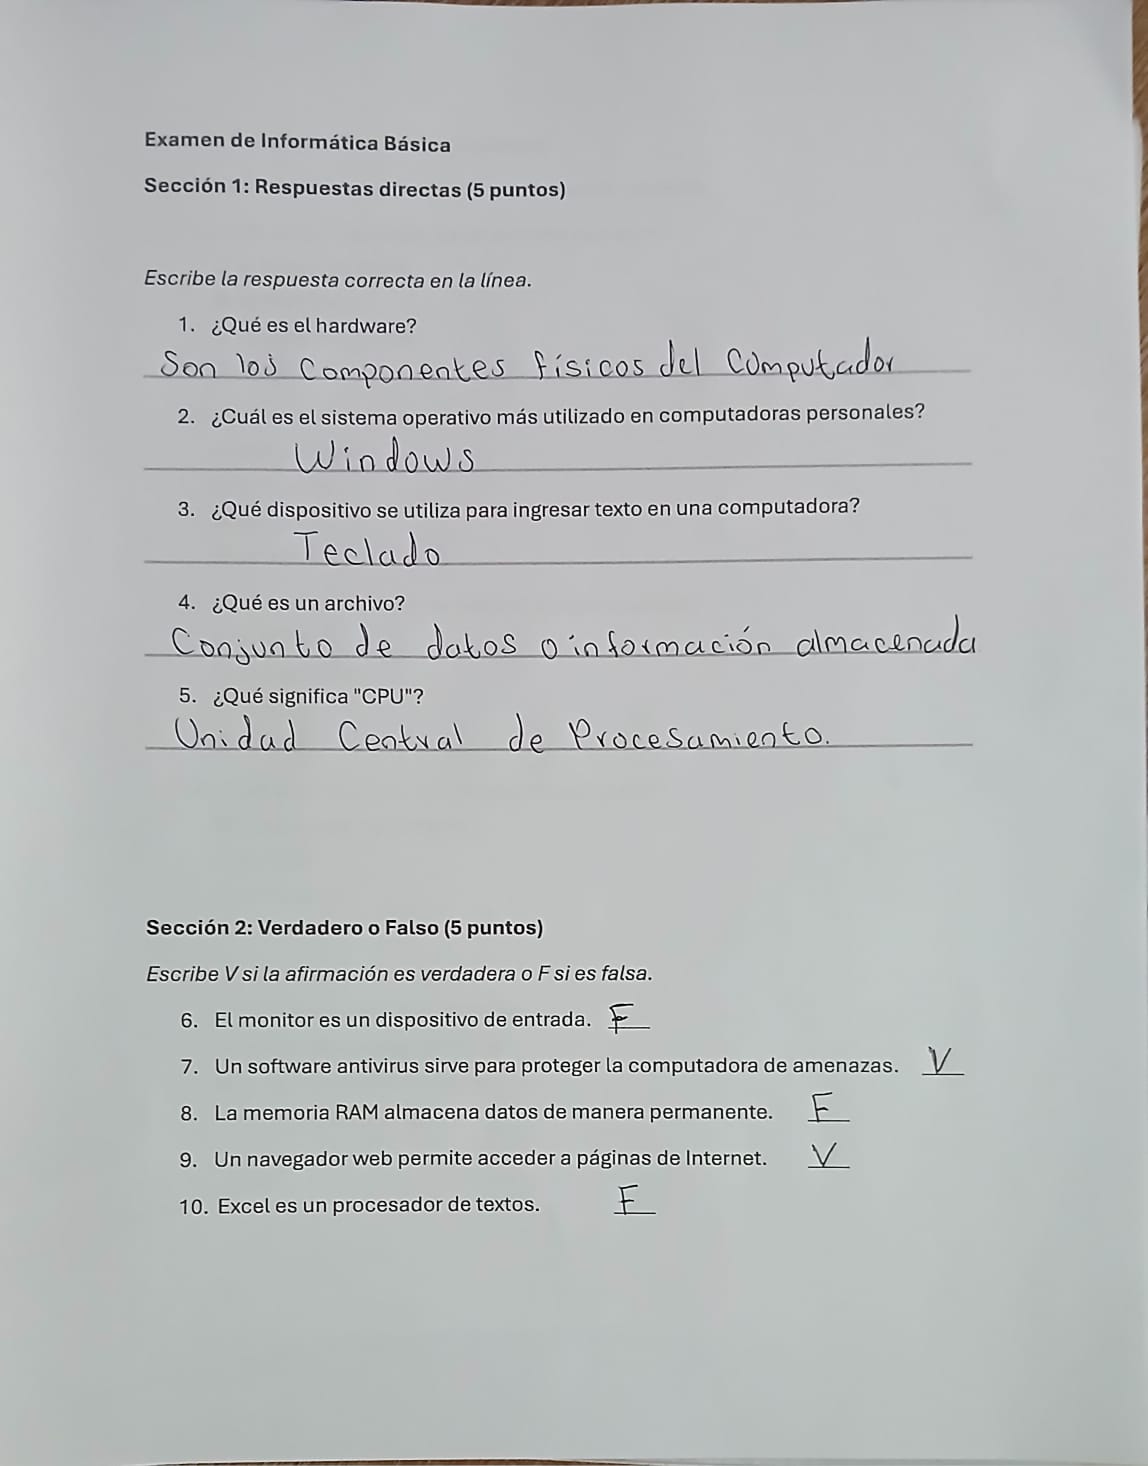 Examen de Informática Básica
Sección 1: Respuestas directas (5 puntos)
Escribe la respuesta correcta en la línea.
1. ¿Qué es el hardware?
Son los componentes físicos del computador
2. ¿Cuál es el sistema operativo más utilizado en computadoras personales?
Windows
3. ¿Qué dispositivo se utiliza para ingresar texto en una computadora?
Teclado
4. ¿Qué es un archivo?
Conjunto de datos o información almacenada
5. ¿Qué significa "CPU"?
Unidad Central de Procesamiento.
Sección 2: Verdadero o Falso (5 puntos)
Escribe V si la afirmación es verdadera o F si es falsa.
6. El monitor es un dispositivo de entrada. F
7. Un software antivirus sirve para proteger la computadora de amenazas. V
8. La memoria RAM almacena datos de manera permanente. F
9. Un navegador web permite acceder a páginas de Internet. V
10. Excel es un procesador de textos. F